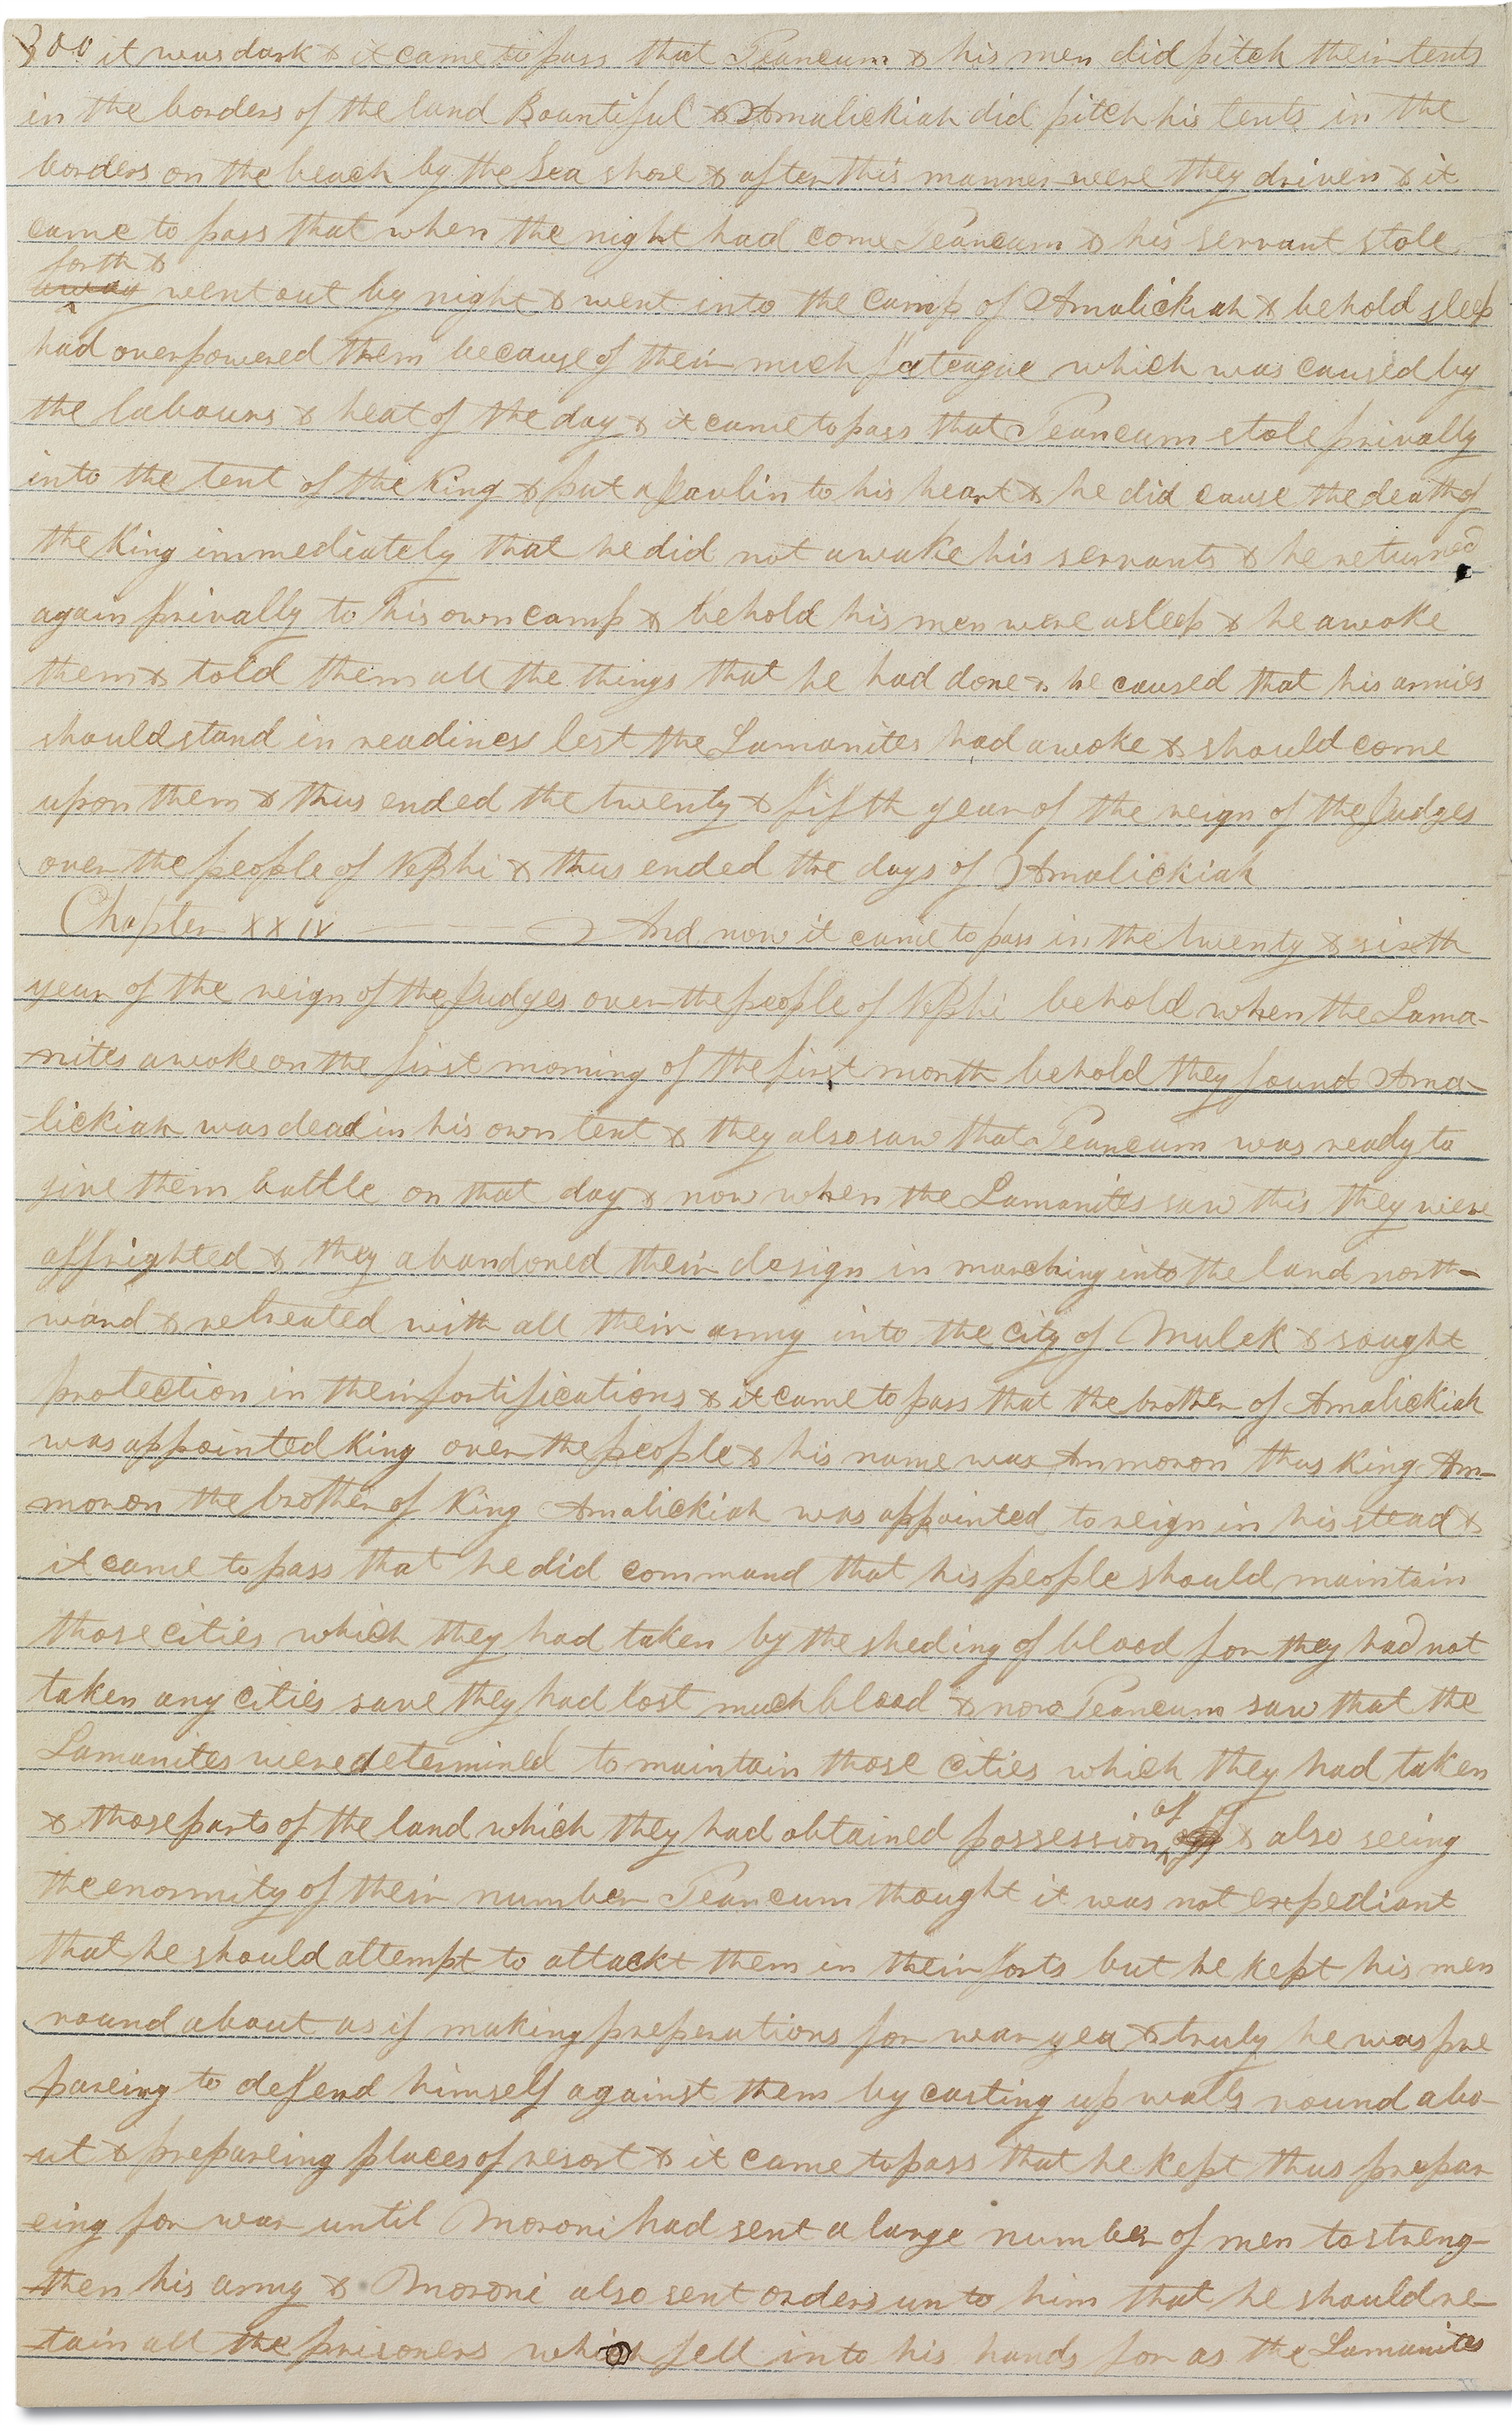 300 it was dark & it came to pass that Teancum & his men did pitch their tents
in the borders of the land Bountiful & Amalickiah did pitch his tents in the
borders on the beach by the Sea shore & after this manner were they driven & it
came to pass that when the night had come Teancum & his servant stole
forth &
away went out by night & went into the camp of Amalickiah & behold sleep
had overpowered them because of their much fateague which was caused by
the labours & heat of the day & it came to pass that Teancum stole privally
into the tent of the King & put a Javlin to his heart & he did cause the death of
the King immediately that he did not awake his servants & he returned
again privally to his own camp & behold his men were asleep & he awoke
them & told them all the things that he had done & he caused that his armies
should stand in readiness lest the Lamanites had awoke & should come
upon them & thus ended the twenty & fifth year of the reign of the Judges
over the people of Nephi & thus ended the days of Amalickiah
Chapter XXIV And now it came to pass in the twenty & sixth
year of the reign of the Judges over the people of Nephi behold when the Lama-
-nites awoke on the first morning of the first month behold they found Ama-
-lickiah was dead in his own tent & they also saw that Teancum was ready to
give them battle on that day & now when the Lamanites saw this they were
affrighted & they abandoned their design in marching into the land north-
-ward & retreated with all their army into the city of Mulek & sought
protection in their fortifications & it came to pass that the brother of Amalickiah
was appointed King over the people & his name was Ammoron thus King Am-
-moron the brother of King Amalickiah was appointed to reign in his stead &
it came to pass that he did command that his people should maintain
those cities which they had taken by the sheding of blood for they had not
taken any cities save they had lost much blood & now Teancum saw that the
Lamanites were determined to maintain those cities which they had taken
& those parts of the land which they had obtained possession of & also seeing
the enormity of their number Teancum thought it was not expediant
that he should attempt to attackt them in their forts but he kept his men
round about as if making preperations for war yea & truly he was pre
pareing to defend himself against them by casting up walls round abo-
-ut & prepareing places of resort & it came to pass that he kept thus prepar
eing for war until Moroni had sent a large number of men to streng-
-then his army & Moroni also sent orders unto him that he should re-
-tain all the prisoners which fell into his hands for as the Lamanites